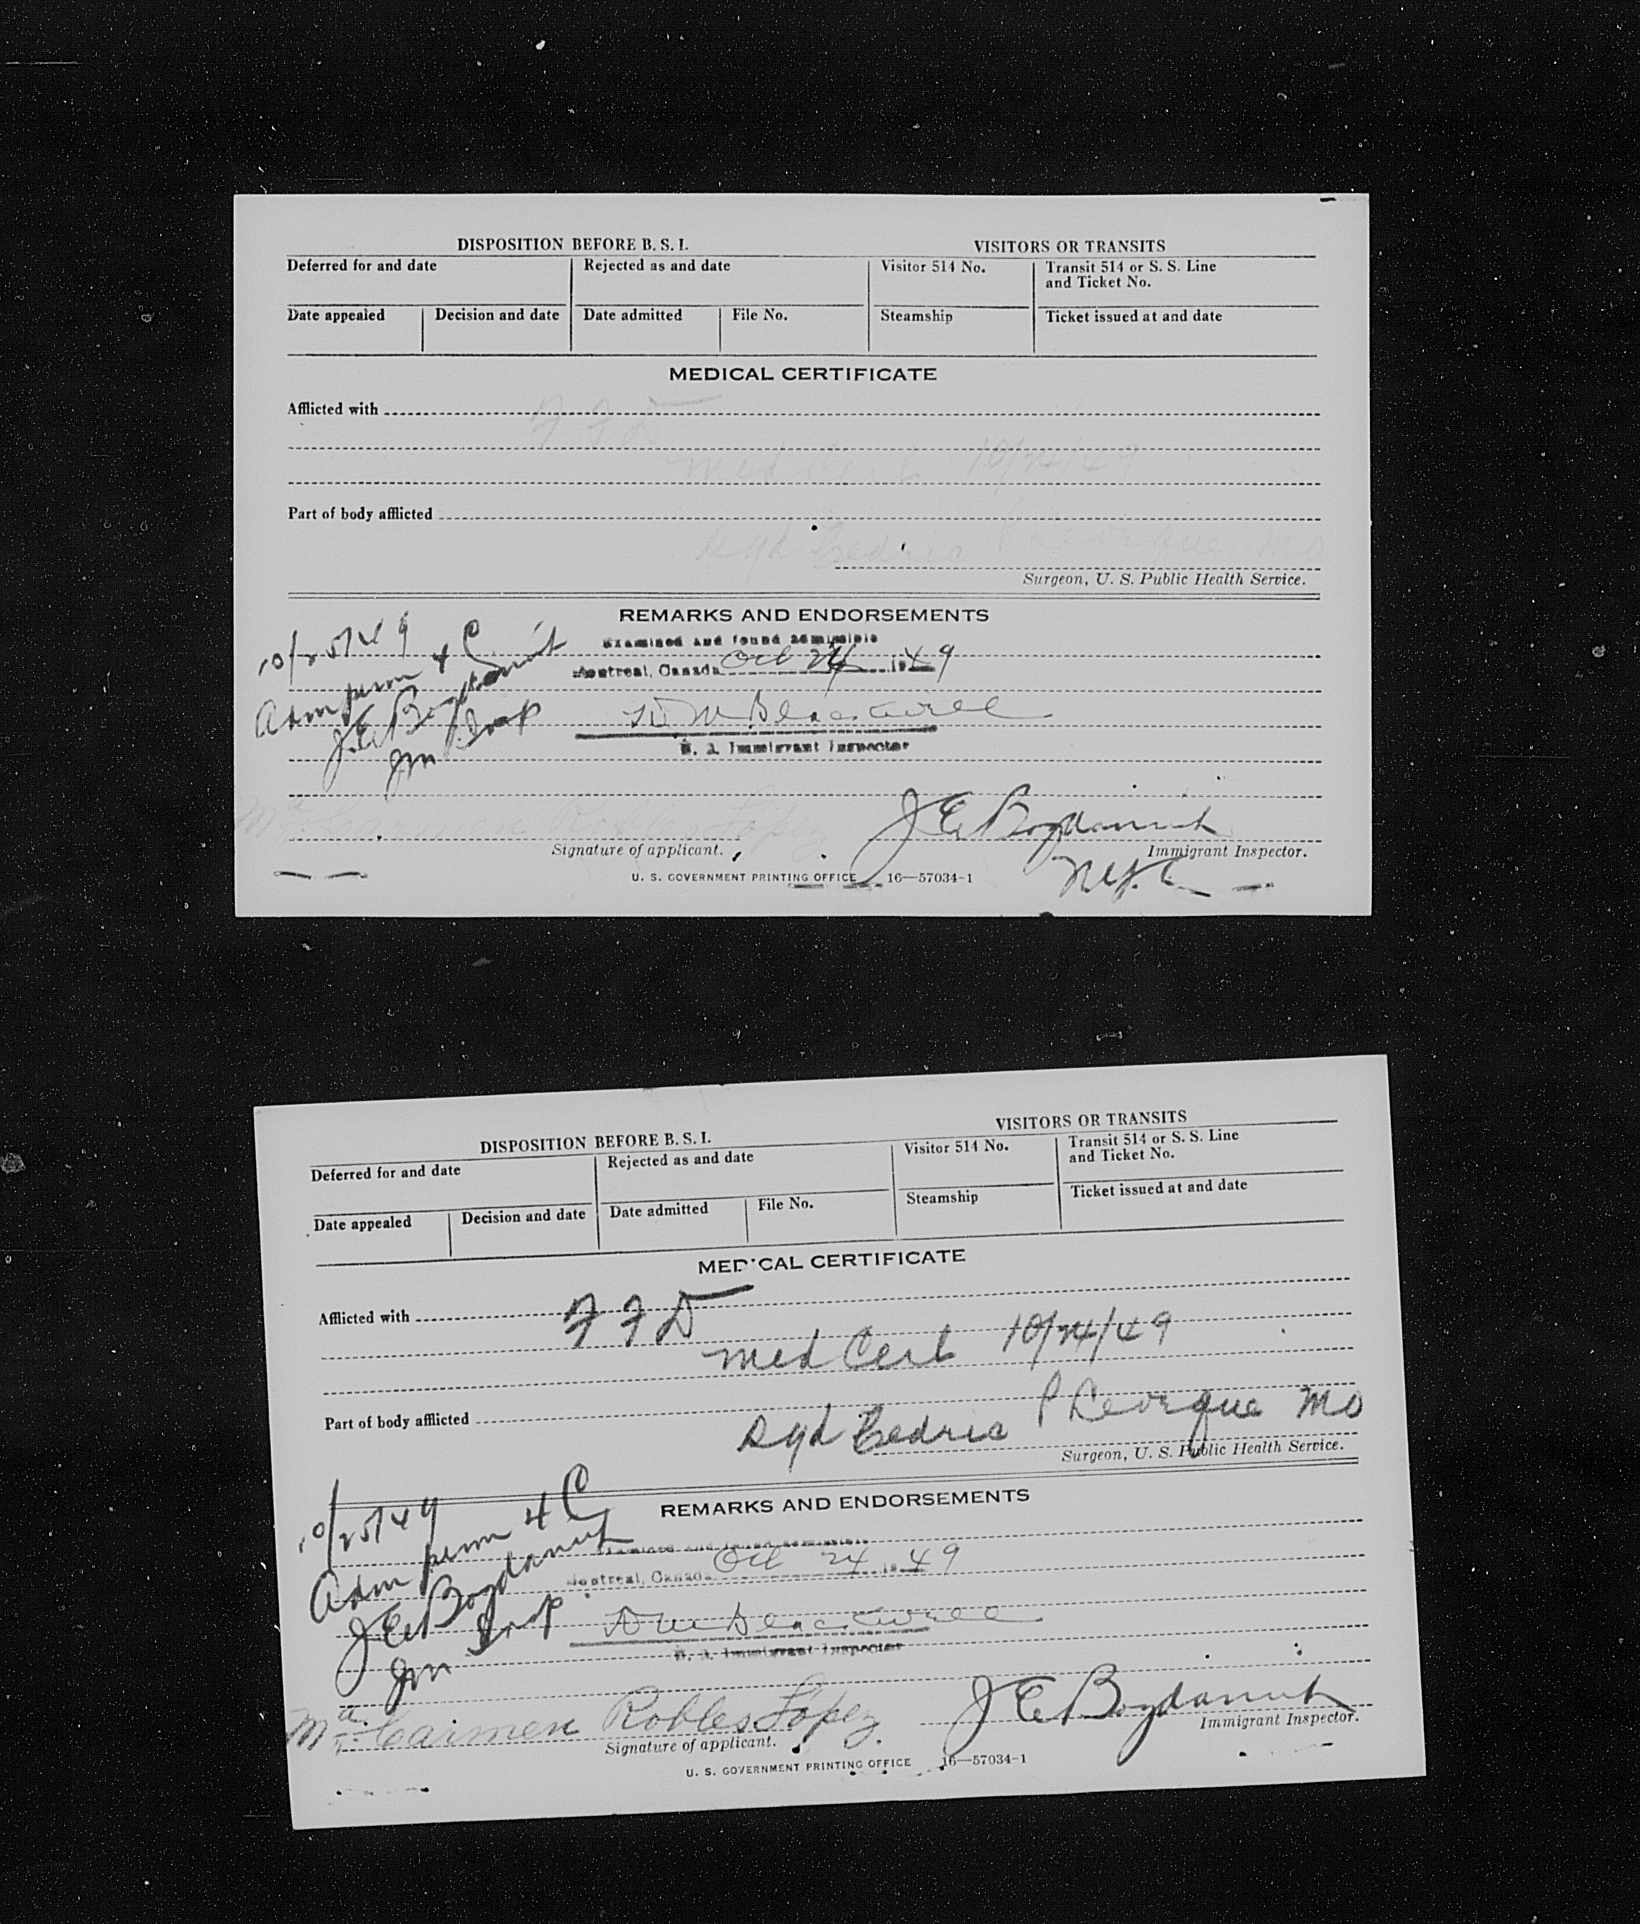 DISPOSITION BEFORE B. S. I.
VISITORS OR TRANSITS
Deferred for and date
Rejected as and date
Visitor 514 No.
Transit 514 or S. S. Line
and Ticket No.
Date appealed
Decision and date
Date admitted
File No.
Steamship
Ticket issued at and date
MEDICAL CERTIFICATE
Afflicted with
F F D
Med Cert 10/24/49
Part of body afflicted
Sgd Cedric
MD
Surgeon, U. S. Public Health Service.
REMARKS AND ENDORSEMENTS
10/25/49
Adm perm 4 C
J.E. Bogdanuik
Im Insp
Examined and found admissible
Montreal, Canada Oct 24 1949
U. S. Immigrant Inspector
Mª Carmen Robles López
J E Bogdanuik
Signature of applicant.
Immigrant Inspector.
NYC
U. S. GOVERNMENT PRINTING OFFICE 16—57034-1
DISPOSITION BEFORE B. S. I.
VISITORS OR TRANSITS
Deferred for and date
Rejected as and date
Visitor 514 No.
Transit 514 or S. S. Line
and Ticket No.
Date appealed
Decision and date
Date admitted
File No.
Steamship
Ticket issued at and date
MEDICAL CERTIFICATE
Afflicted with F F D
Med Cert 10/24/49
Part of body afflicted
Sgd Cedric P MD
Surgeon, U. S. Public Health Service.
REMARKS AND ENDORSEMENTS
10/25/49
Adm perm 4 C
J.E. Bogdanuik
Im Insp
Examined and found admissible
Montreal, Canada Oct 24 1949
U. S. Immigrant Inspector
Mª Carmen Robles López
J E Bogdanuik
Signature of applicant.
Immigrant Inspector.
U. S. GOVERNMENT PRINTING OFFICE 16—57034-1